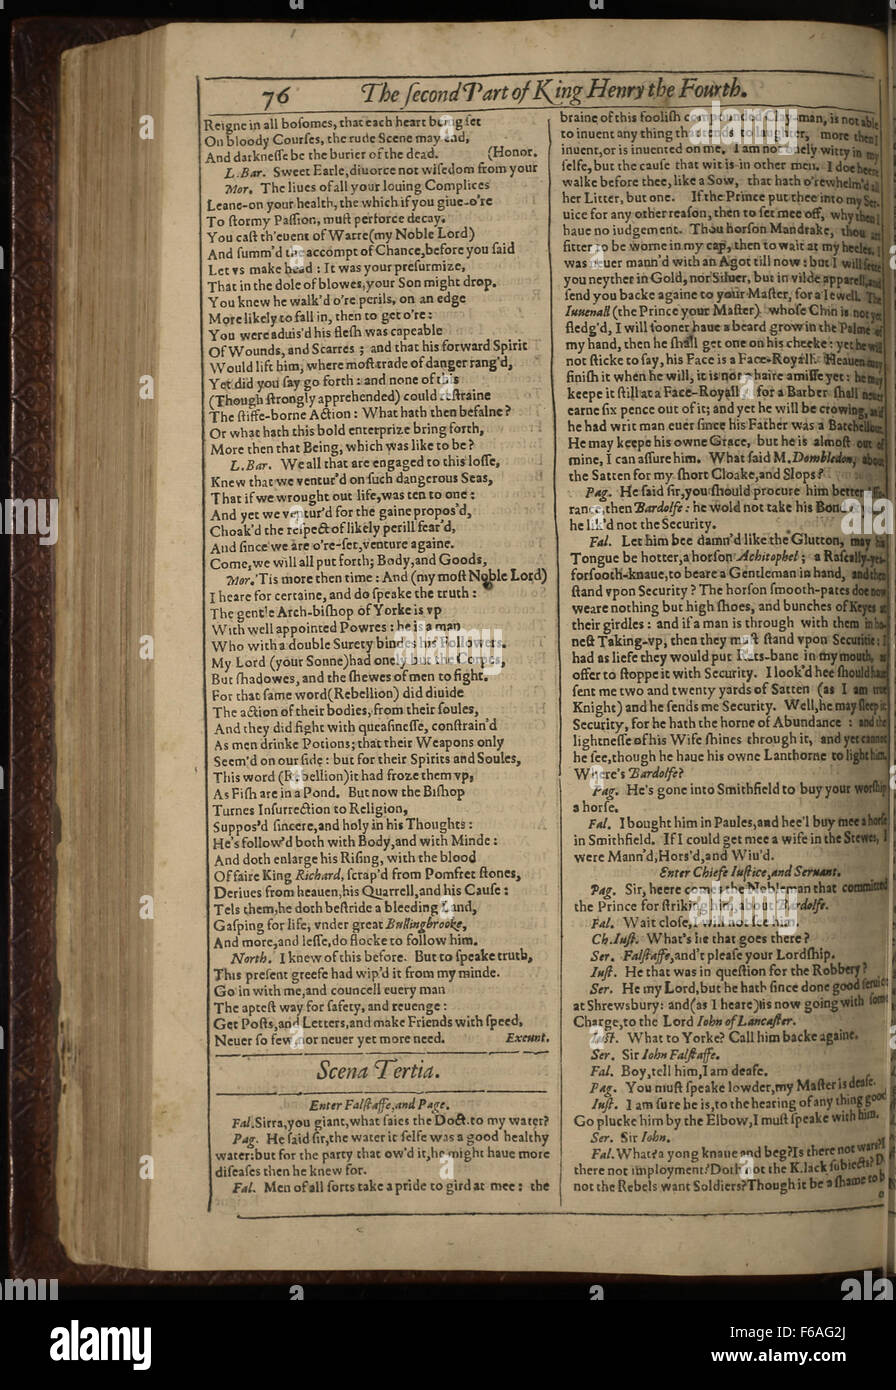 76 The ſecond Part of King Henry the Fourth.
Reigne in all boſomes, that each heart being ſet
On bloody Courſes, the rude Scene may end,
And darkneſſe be the burier of the dead. (Honor.
L.Bar. Sweet Earle, diuorce not wiſedom from your
Mor. The liues of all your louing Complices
Leane-on your health, the which if you giue-o're
To ſtormy Paſſion, muſt perforce decay.
You caſt th'euent of Warre(my Noble Lord)
And ſumm'd the accompt of Chance, before you ſaid
Let vs make head : It was your preſurmize,
That in the dole of blowes, your Son might drop.
You knew he walk'd o're perils, on an edge
More likely to fall in, then to get o're :
You were aduis'd his fleſh was capeable
Of Wounds, and Scarres ; and that his forward Spirit
Would lift him, where moſt trade of danger rang'd,
Yet did you ſay go forth : and none of this
(Though ſtrongly apprehended) could reſtraine
The ſtiffe-borne Action : What hath then befalne ?
Or what hath this bold enterprize bring forth,
More then that Being, which was like to be ?
L.Bar. We all that are engaged to this loſſe,
Knew that we ventur'd on ſuch dangerous Seas,
That if we wrought out life, was ten to one :
And yet we ventur'd for the gaine propos'd,
Choak'd the reſpect of likely perill fear'd,
And ſince we are o're-ſet, venture againe.
Come, we will all put forth; Body, and Goods,
Mor. 'Tis more then time : And (my moſt Noble Lord)
I heare for certaine, and do ſpeake the truth :
The gentle Arch-biſhop of Yorke is vp
With well appointed Powres : he is a man
Who with a double Surety bindes his Followers.
My Lord (your Sonne)had onely but the Corpes,
But ſhadowes, and the ſhewes of men to fight.
For that ſame word(Rebellion) did diuide
The action of their bodies, from their ſoules,
And they did fight with queaſineſſe, conſtrain'd
As men drinke Potions; that their Weapons only
Seem'd on our ſide : but for their Spirits and Soules,
This word (Rebellion)it had froze them vp,
As Fiſh are in a Pond. But now the Biſhop
Turnes Inſurrection to Religion,
Suppos'd ſincere, and holy in his Thoughts :
He's follow'd both with Body, and with Minde :
And doth enlarge his Riſing, with the blood
Of faire King Richard, ſcrap'd from Pomfret ſtones,
Deriues from heauen, his Quarrell, and his Cauſe :
Tels them, he doth beſtride a bleeding Land,
Gaſping for life, vnder great Bullingbrooke,
And more, and leſſe, do flocke to follow him.
North. I knew of this before. But to ſpeake truth,
This preſent greefe had wip'd it from my minde.
Go in with me, and councell euery man
The apteſt way for ſafety, and reuenge :
Get Poſts, and Letters, and make Friends with ſpeed,
Neuer ſo few, nor neuer yet more need. Exeunt.
Scena Tertia.
Enter Falſtaffe, and Page.
Fal. Sirra, you giant, what ſaies the Doct. to my water?
Pag. He ſaid ſir, the water it ſelfe was a good healthy
water: but for the party that ow'd it, he might haue more
diſeaſes then he knew for.
Fal. Men of all ſorts take a pride to gird at mee : the
braine of this fooliſh compounded Clay-man, is not able
to inuent any thing that tends to laughter, more then I
inuent, or is inuented on me. I am not onely witty in my
ſelfe, but the cauſe that wit is in other men. I doe heere
walke before thee, like a Sow, that hath o'rewhelm'd all
her Litter, but one. If the Prince put thee into my Ser-
uice for any other reaſon, then to ſet mee off, why then I
haue no iudgement. Thou horſon Mandrake, thou art
fitter to be worne in my cap, then to wait at my heeles. I
was neuer mann'd with an Agot till now : but I will ſette
you neyther in Gold, nor Siluer, but in vilde apparell, and
ſend you backe againe to your Maſter, for a Iewell. The
Iuuenall (the Prince your Maſter) whoſe Chin is not yet
fledg'd, I will ſooner haue a beard grow in the Palme of
my hand, then he ſhall get one on his cheeke : yet he will
not ſticke to ſay, his Face is a Face-Royall. Heauen may
finiſh it when he will, it is not a haire amiſſe yet : he may
keepe it ſtill at a Face-Royall, for a Barber ſhall neuer
earne ſix pence out of it; and yet he will be crowing, as if
he had writ man euer ſince his Father was a Batchellour.
He may keepe his owne Grace, but he is almoſt out of
mine, I can aſſure him. What ſaid M. Dombledon, about
the Satten for my ſhort Cloake, and Slops ?
Pag. He ſaid ſir, you ſhould procure him better
rance, then Bardolfe : he wold not take his Bond
he lik'd not the Security.
Fal. Let him bee damn'd like the Glutton, may his
Tongue be hotter, a horſon Achitophel ; a Raſcally-yea-
forſooth-knaue, to beare a Gentleman in hand, and then
ſtand vpon Security ? The horſon ſmooth-pates doe now
weare nothing but high ſhoes, and bunches of Keyes at
their girdles : and if a man is through with them in ho-
neſt Taking-vp, then they muſt ſtand vpon Securitie : I
had as liefe they would put Rats-bane in my mouth, as
offer to ſtoppe it with Security. I look'd hee ſhould haue
ſent me two and twenty yards of Satten (as I am true
Knight) and he ſends me Security. Well, he may ſleep in
Security, for he hath the horne of Abundance : and the
lightneſſe of his Wife ſhines through it, and yet cannot
he ſee, though he haue his owne Lanthorne to light him.
Where's Bardolfe?
Pag. He's gone into Smithfield to buy your worſhip
a horſe.
Fal. I bought him in Paules, and hee'l buy mee a horſe
in Smithfield. If I could get mee a wife in the Stewes, I
were Mann'd, Hors'd, and Wiu'd.
Enter Chiefe Iuſtice, and Seruant.
Pag. Sir, heere comes the Nobleman that committed
the Prince for ſtriking him, about Bardolfe.
Fal. Wait cloſe, I will not ſee him.
Ch.Iuſt. What's he that goes there ?
Ser. Falſtaffe, and't pleaſe your Lordſhip.
Iuſt. He that was in queſtion for the Robbery ?
Ser. He my Lord, but he hath ſince done good ſeruice
at Shrewsbury : and(as I heare)is now going with ſome
Charge, to the Lord Iohn of Lancaſter.
Iuſt. What to Yorke? Call him backe againe.
Ser. Sir Iohn Falſtaffe.
Fal. Boy, tell him, I am deafe.
Pag. You muſt ſpeake lowder, my Maſter is deafe.
Iuſt. I am ſure he is, to the hearing of any thing good
Go plucke him by the Elbow, I muſt ſpeake with him.
Ser. Sir Iohn.
Fal. What? a yong knaue and beg? Is there not wars?
there not imployment? Doth not the K. lack ſubiects?
not the Rebels want Soldiers? Though it be a ſhame to b
alamy stock photo
F6AG2J
www.alamy.com